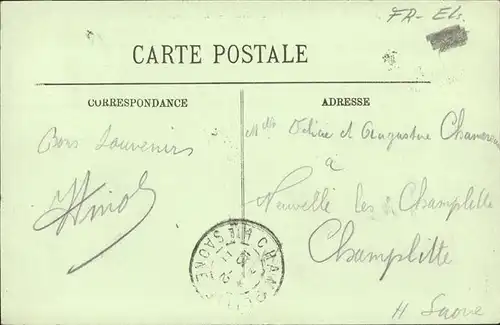 FR - Els.
CARTE POSTALE
CORRESPONDANCE
ADRESSE
Bons Souvenirs
Mlles et Augustine
à
Neuvelle les Champlitte
Champlitte
H Saone
CHAMPLITTE
HTE SAONE